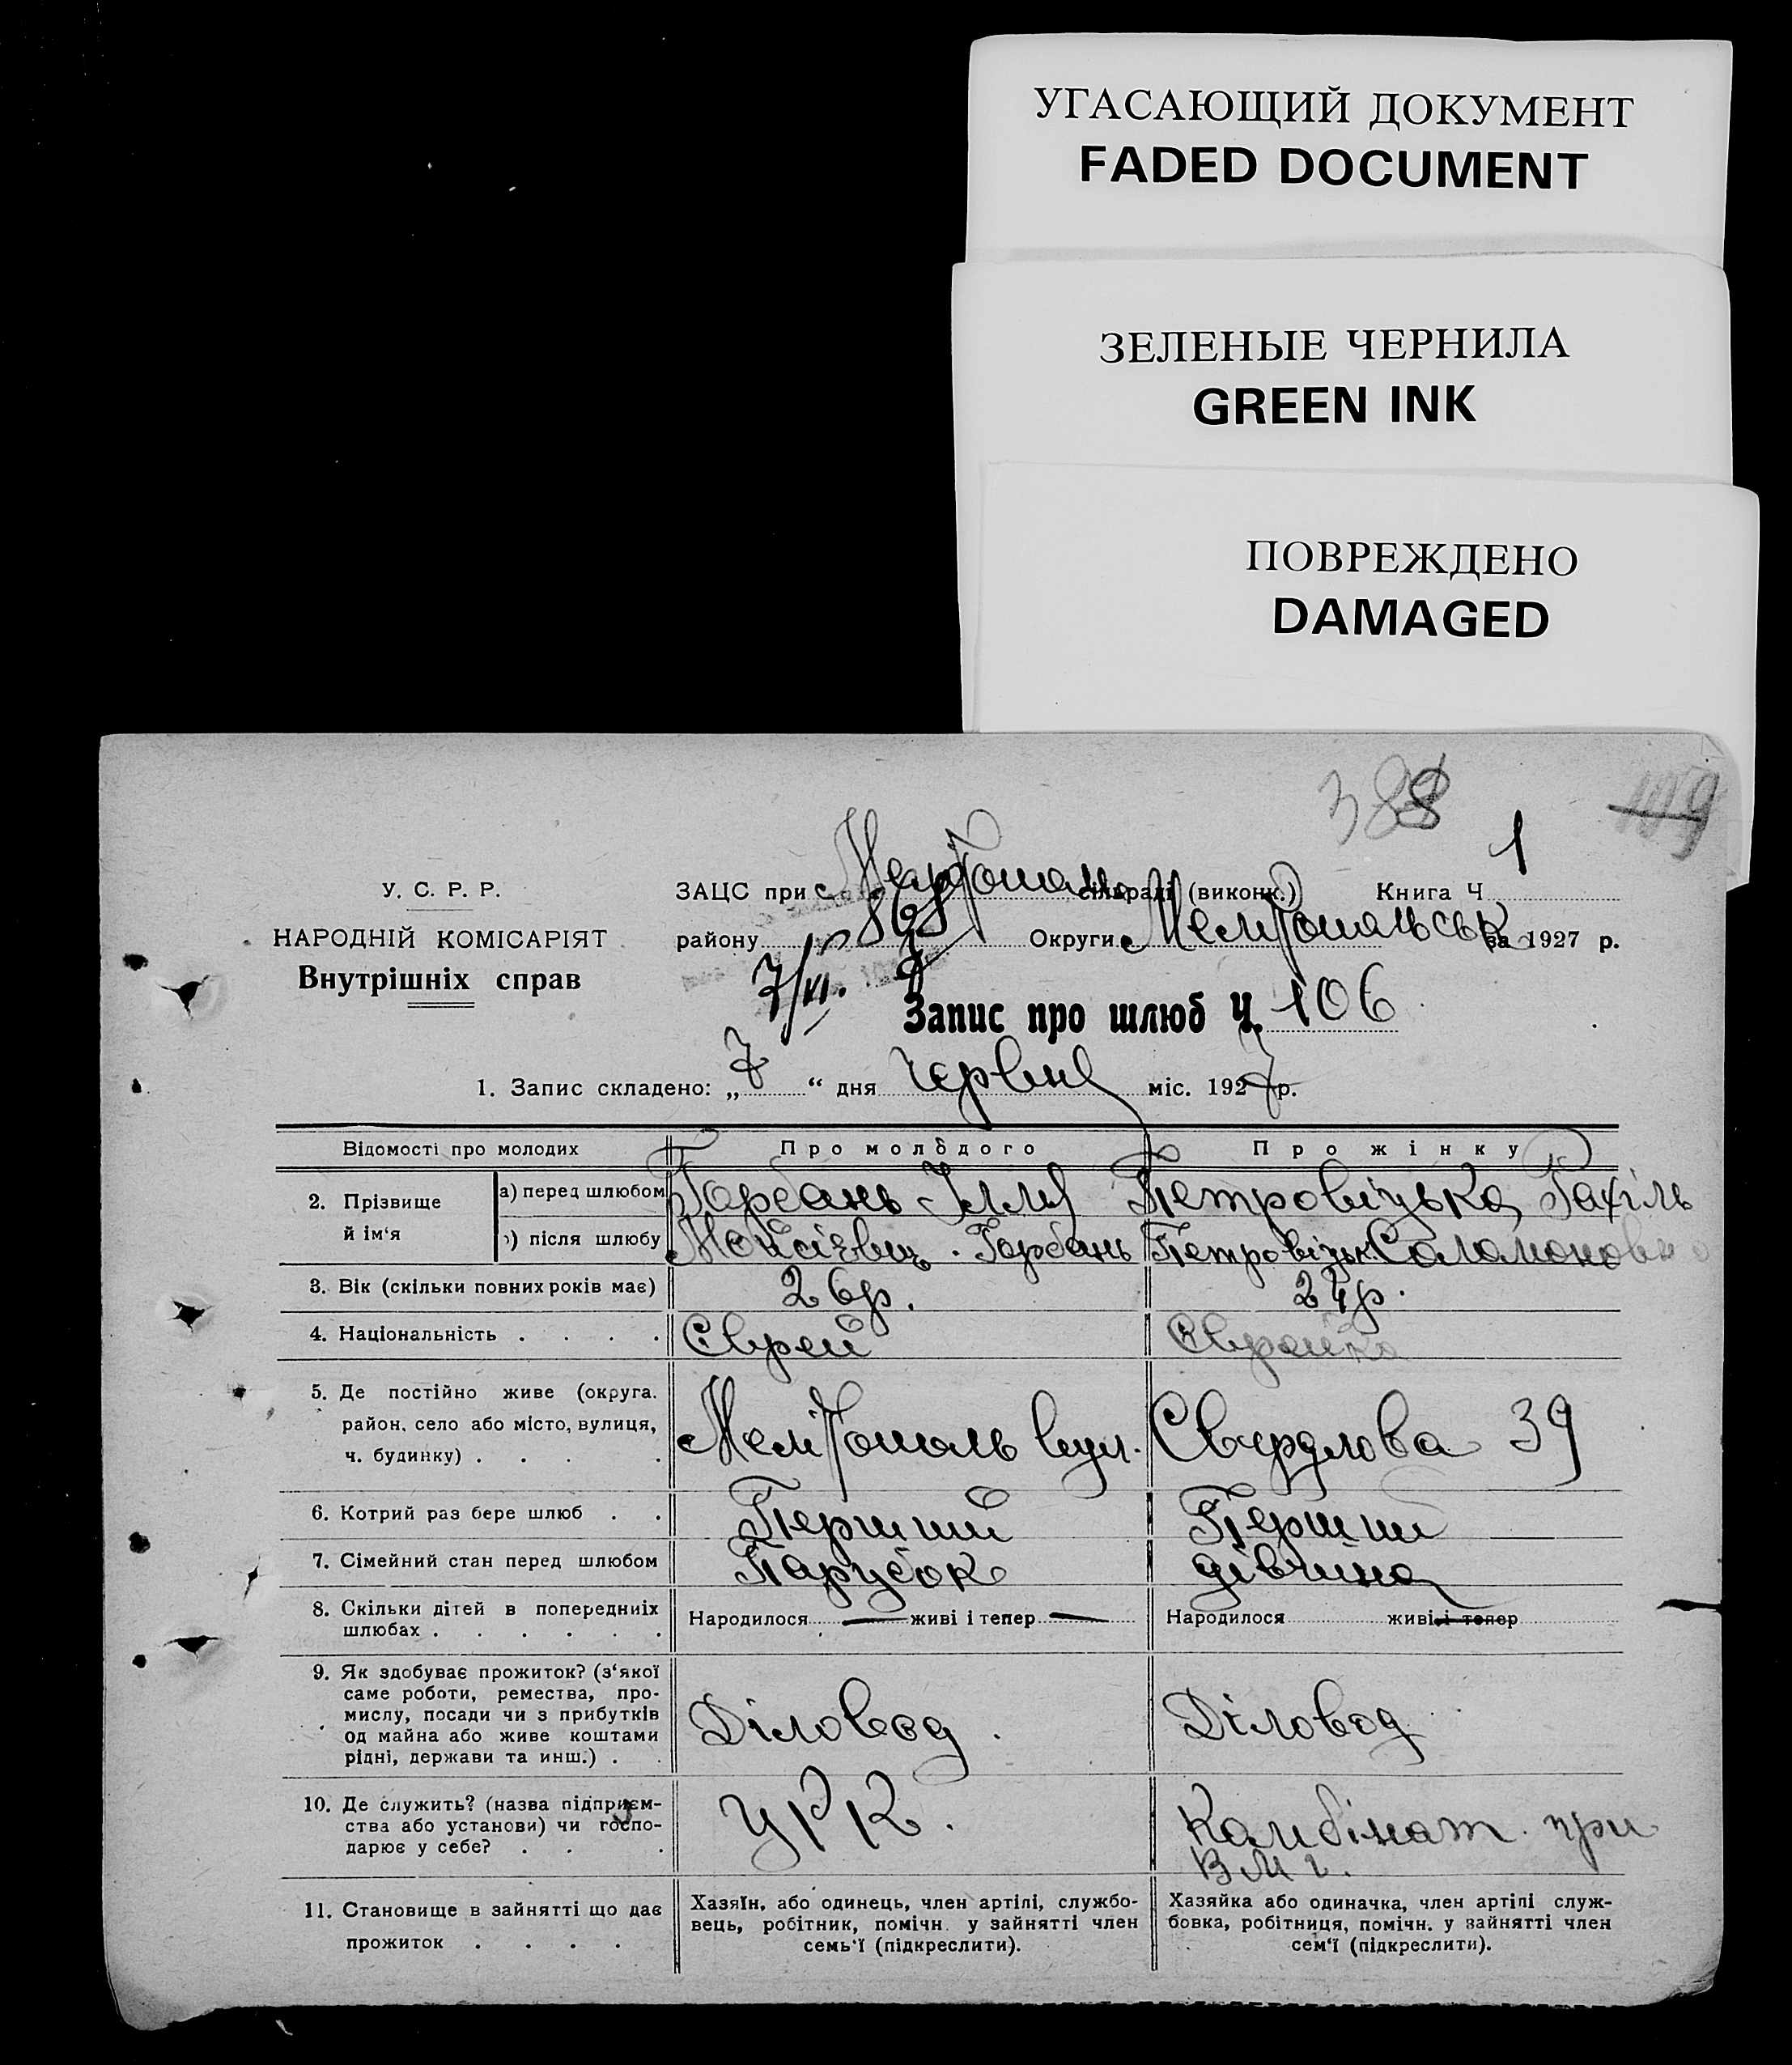 УГАСАЮЩИЙ ДОКУМЕНТ
FADED DOCUMENT
ЗЕЛЕНЫЕ ЧЕРНИЛА
GREEN INK
ПОВРЕЖДЕНО
DAMAGED
388 109
1
У. С. Р. Р.
НАРОДНІЙ КОМІСАРІЯТ
Внутрішніх справ
ЗАЦС при сільраді (виконк.) Книга Ч
району Округи Мелітопольськ за 1927 р.
868
7/VI.
Запис про шлюб Ч. 106
1. Запис складено: „7“ дня червня міс. 1927 р.
Відомості про молодих Про молодого Про жінку
2. Прізвище й ім‘я
а) перед шлюбом Горбань Ілля Петровіцька Рахіль
б) після шлюбу Мойсієвич. Горбань Петровіцьк Соломоновна
3. Вік (скільки повних років має) 26 р. 24 р.
4. Національність . . . . Єврей Єврейка
5. Де постійно живе (округа, район, село або місто, вулиця, ч. будинку) . . . . Мелітополь вул. Свердлова 39
6. Котрий раз бере шлюб . . Перший Перший
7. Сімейний стан перед шлюбом Парубок дівчина
8. Скільки дітей в попередниіх шлюбах . . . . . . Народилося — живі і тепер — Народилося живі і тепер
9. Як здобуває прожиток? (з‘якої
саме роботи, ремества, про-
мислу, посади чи з прибутків
од майна або живе коштами
рідні, держави та инш.) . . Діловод. Діловод
10. Де служить? (назва підприєм-
ства або установи) чи госпо-
дарює у себе? . . . УРК. Комбінат при
11. Становище в зайнятті що дає
прожиток . . . .
Хазяїн, або одинець, член артілі, службо-
вець, робітник, помічн. у зайнятті член
семь‘ї (підкреслити).
Хазяйка або одиначка, член артілі служ-
бовка, робітниця, помічн. у зайнятті член
сем‘ї (підкреслити).